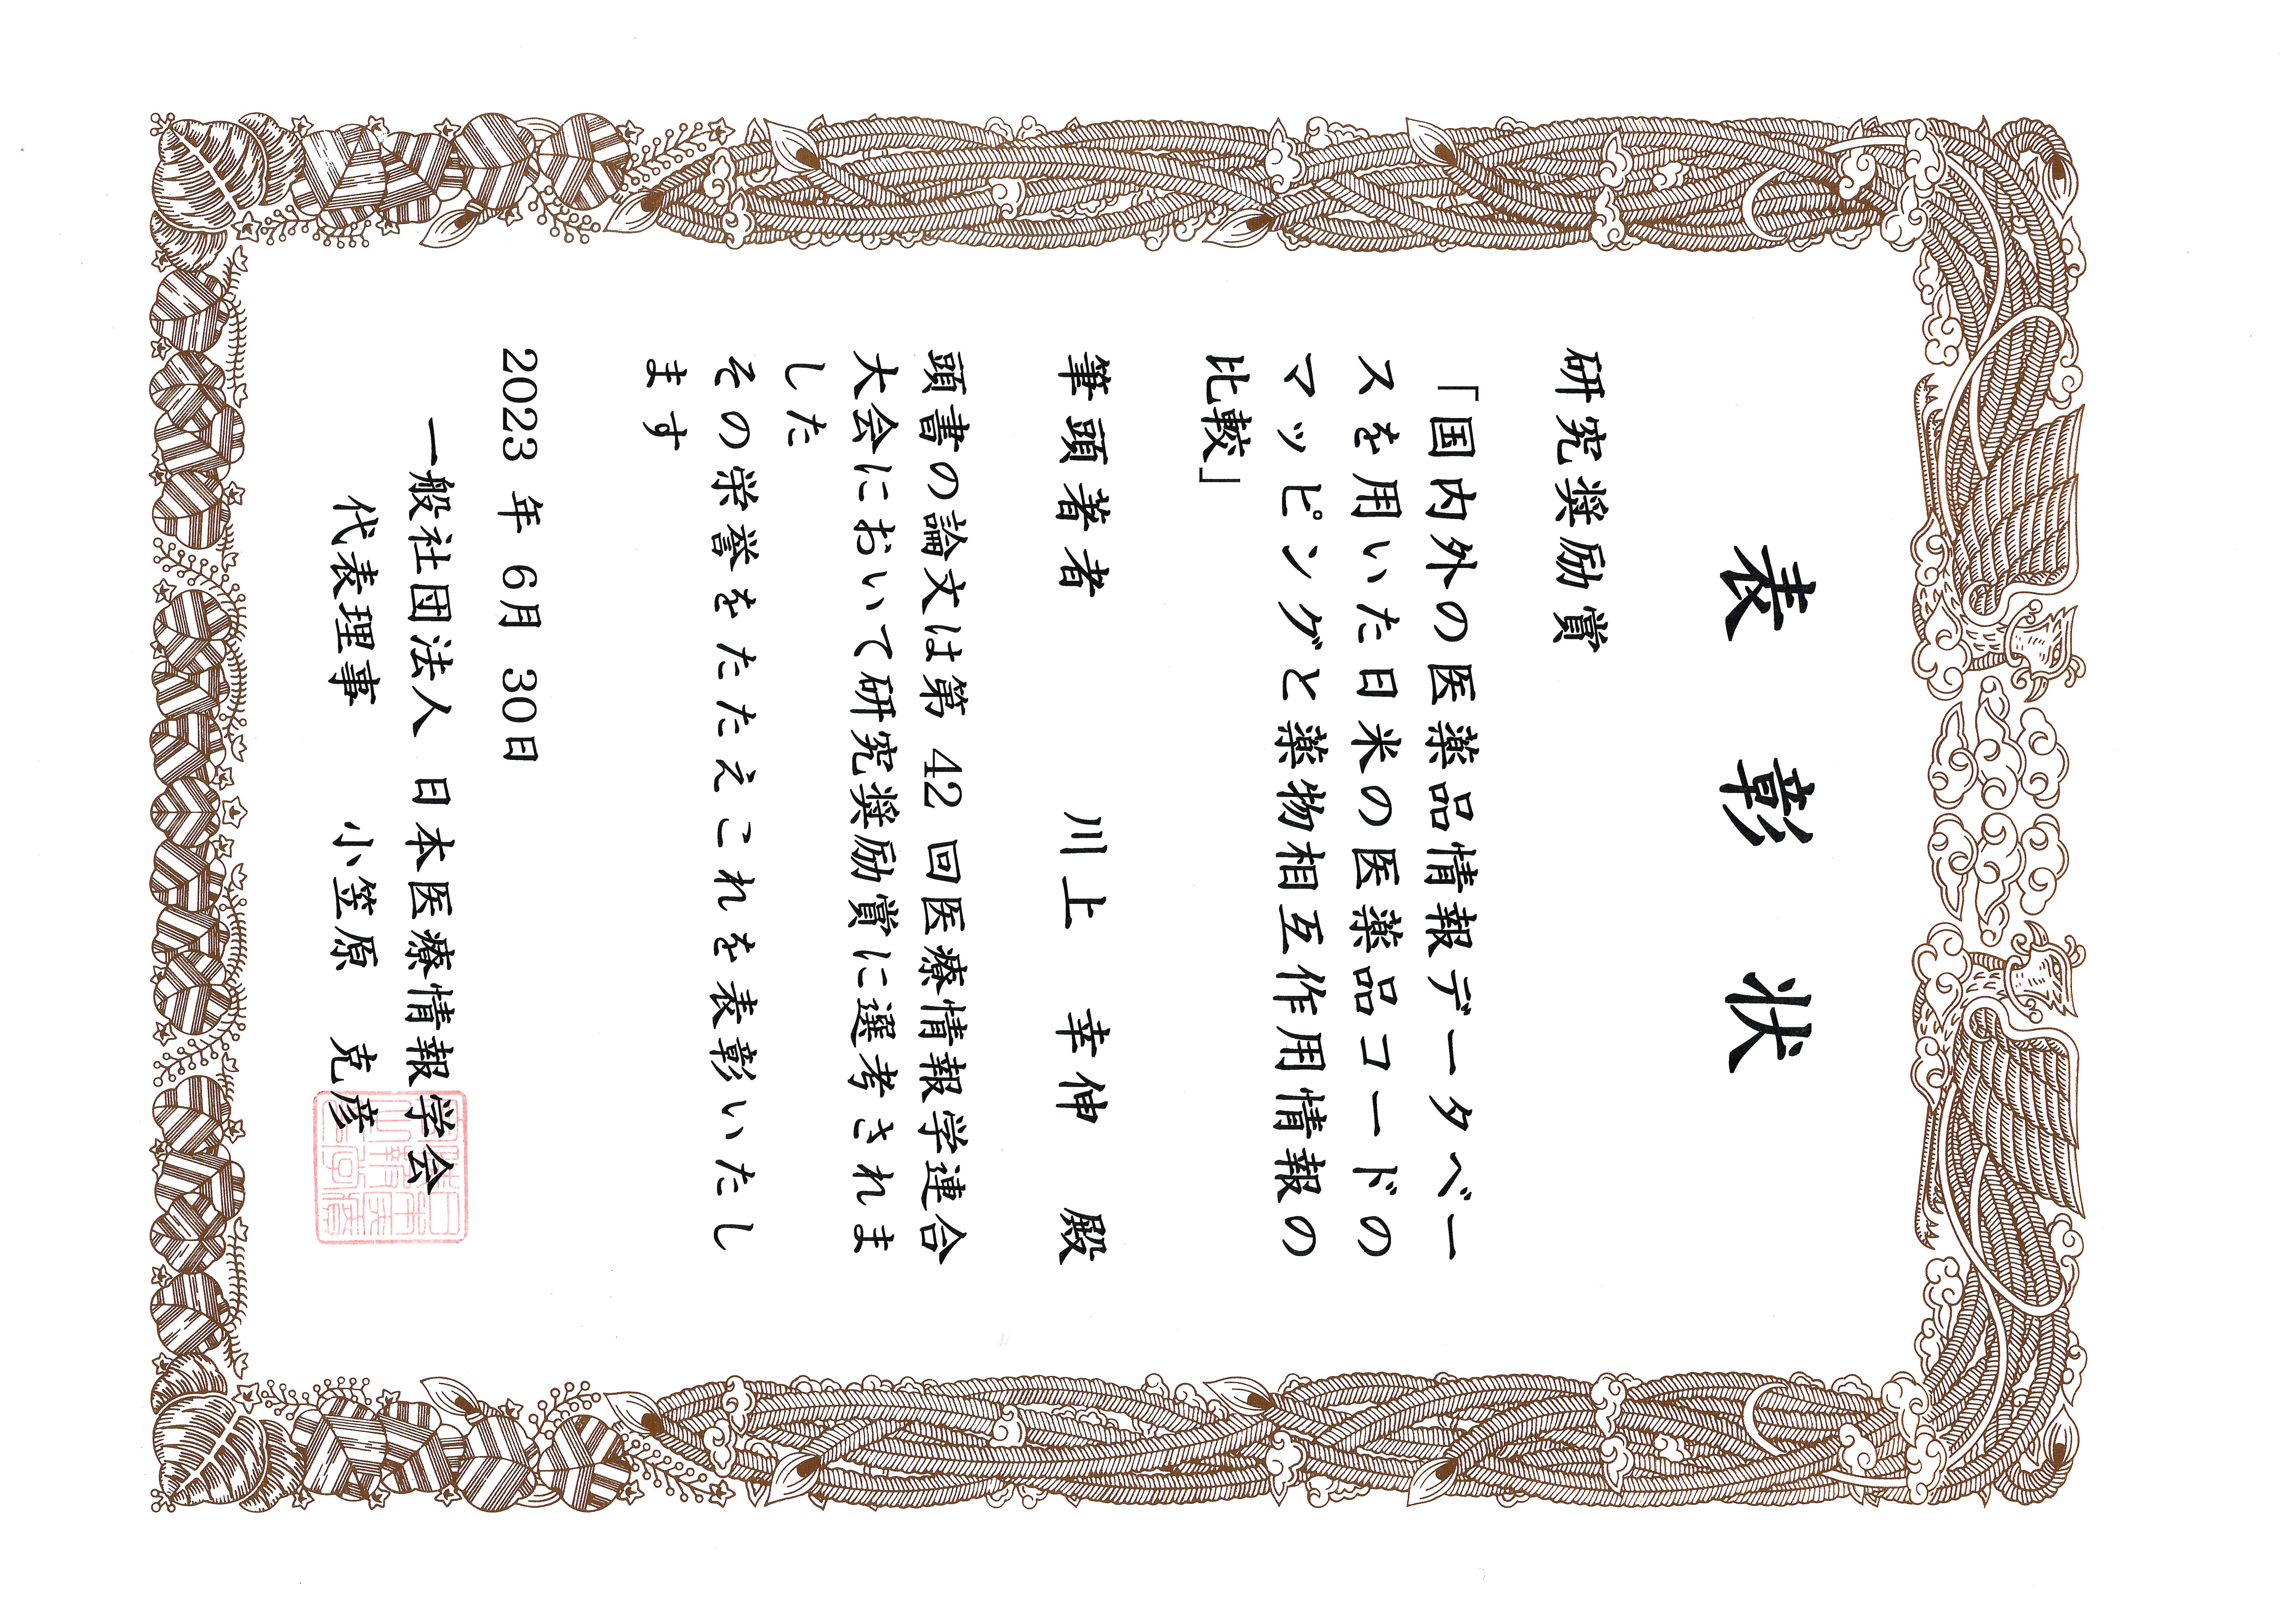 表彰状
研究奨励賞
「国内外の医薬品情報データベー
スを用いた日米の医薬品コードの
マッピングと薬物相互作用情報の
比較」
筆頭著者 川上 幸伸 殿
頭書の論文は第 42 回医療情報学連合
大会において研究奨励賞に選考されま
した
その栄誉をたたえこれを表彰いたし
ます
2023 年 6月 30日
一般社団法人 日本医療情報学会
代表理事 小笠原 克彦